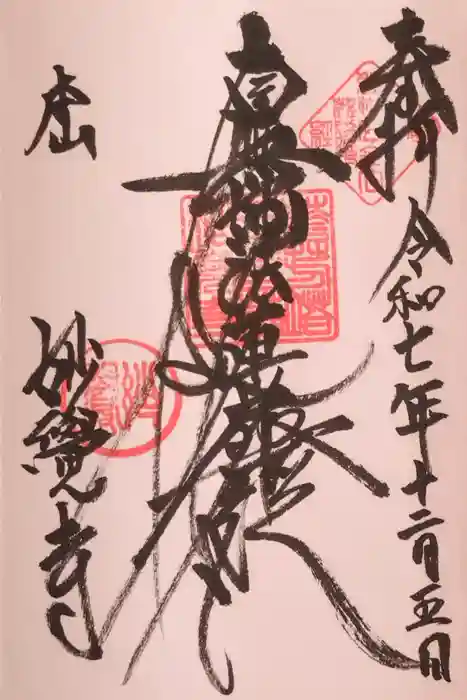 奉拝
令和七年十二月五日
南無妙法蓮華経
本山
妙覺寺